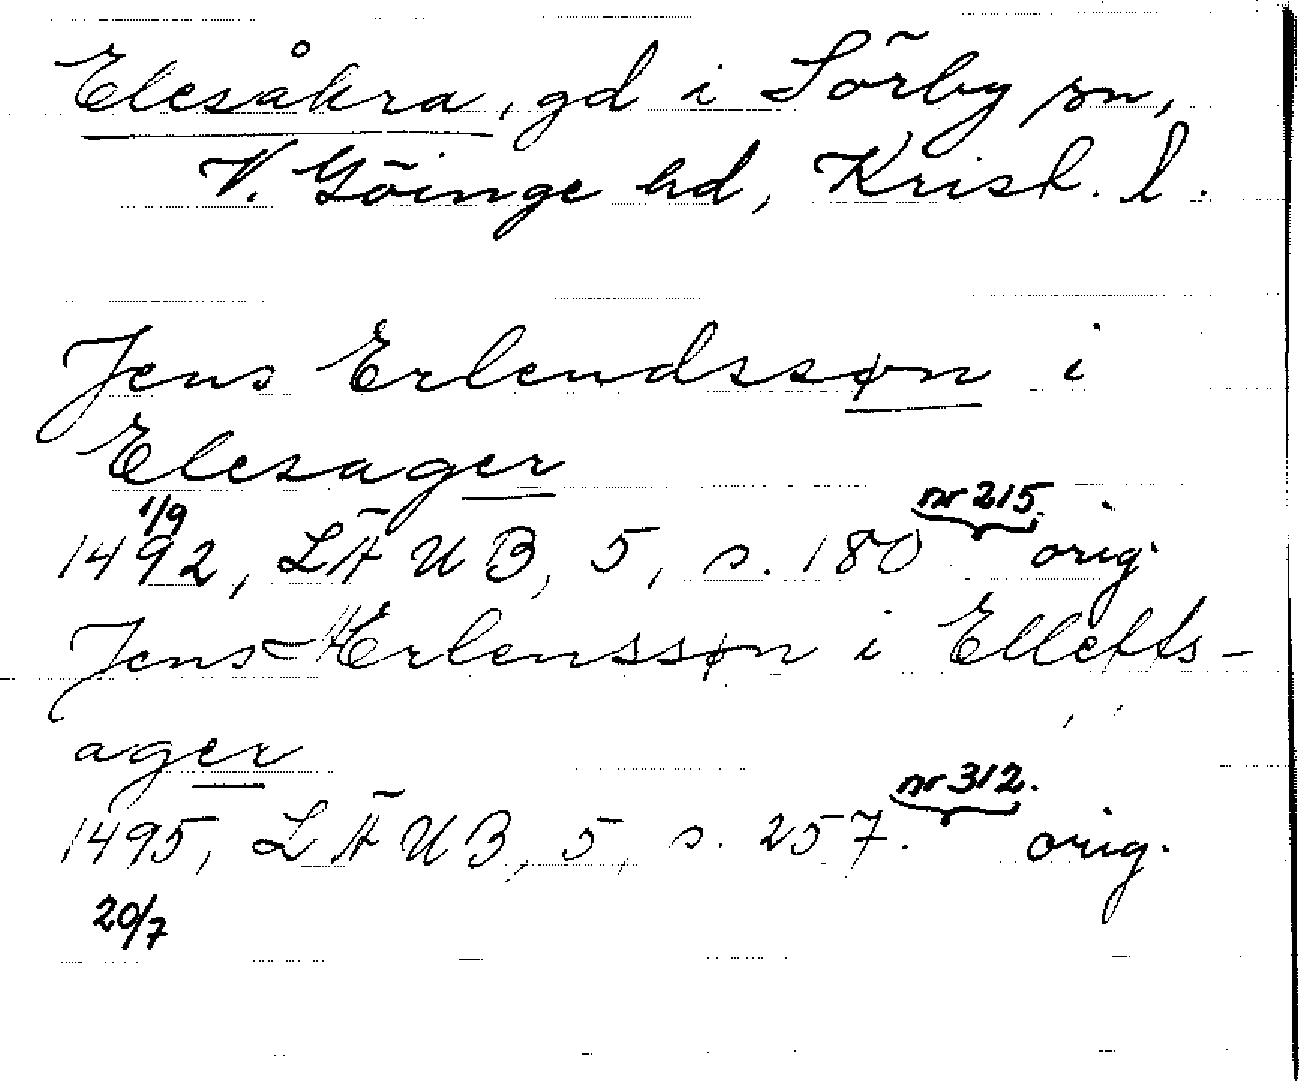 Elesåkra, gd i Sörby sn,
V. Göinge hd, Krist. l.
Jens Erlendssøn i
Elesager
1/9 nr 215.
1492, LÄUB, 5, s. 180 orig.
Jens Erlenssøn i Elletts-
ager
nr 312.
1495, LÄUB, 5, s. 257. orig.
20/7